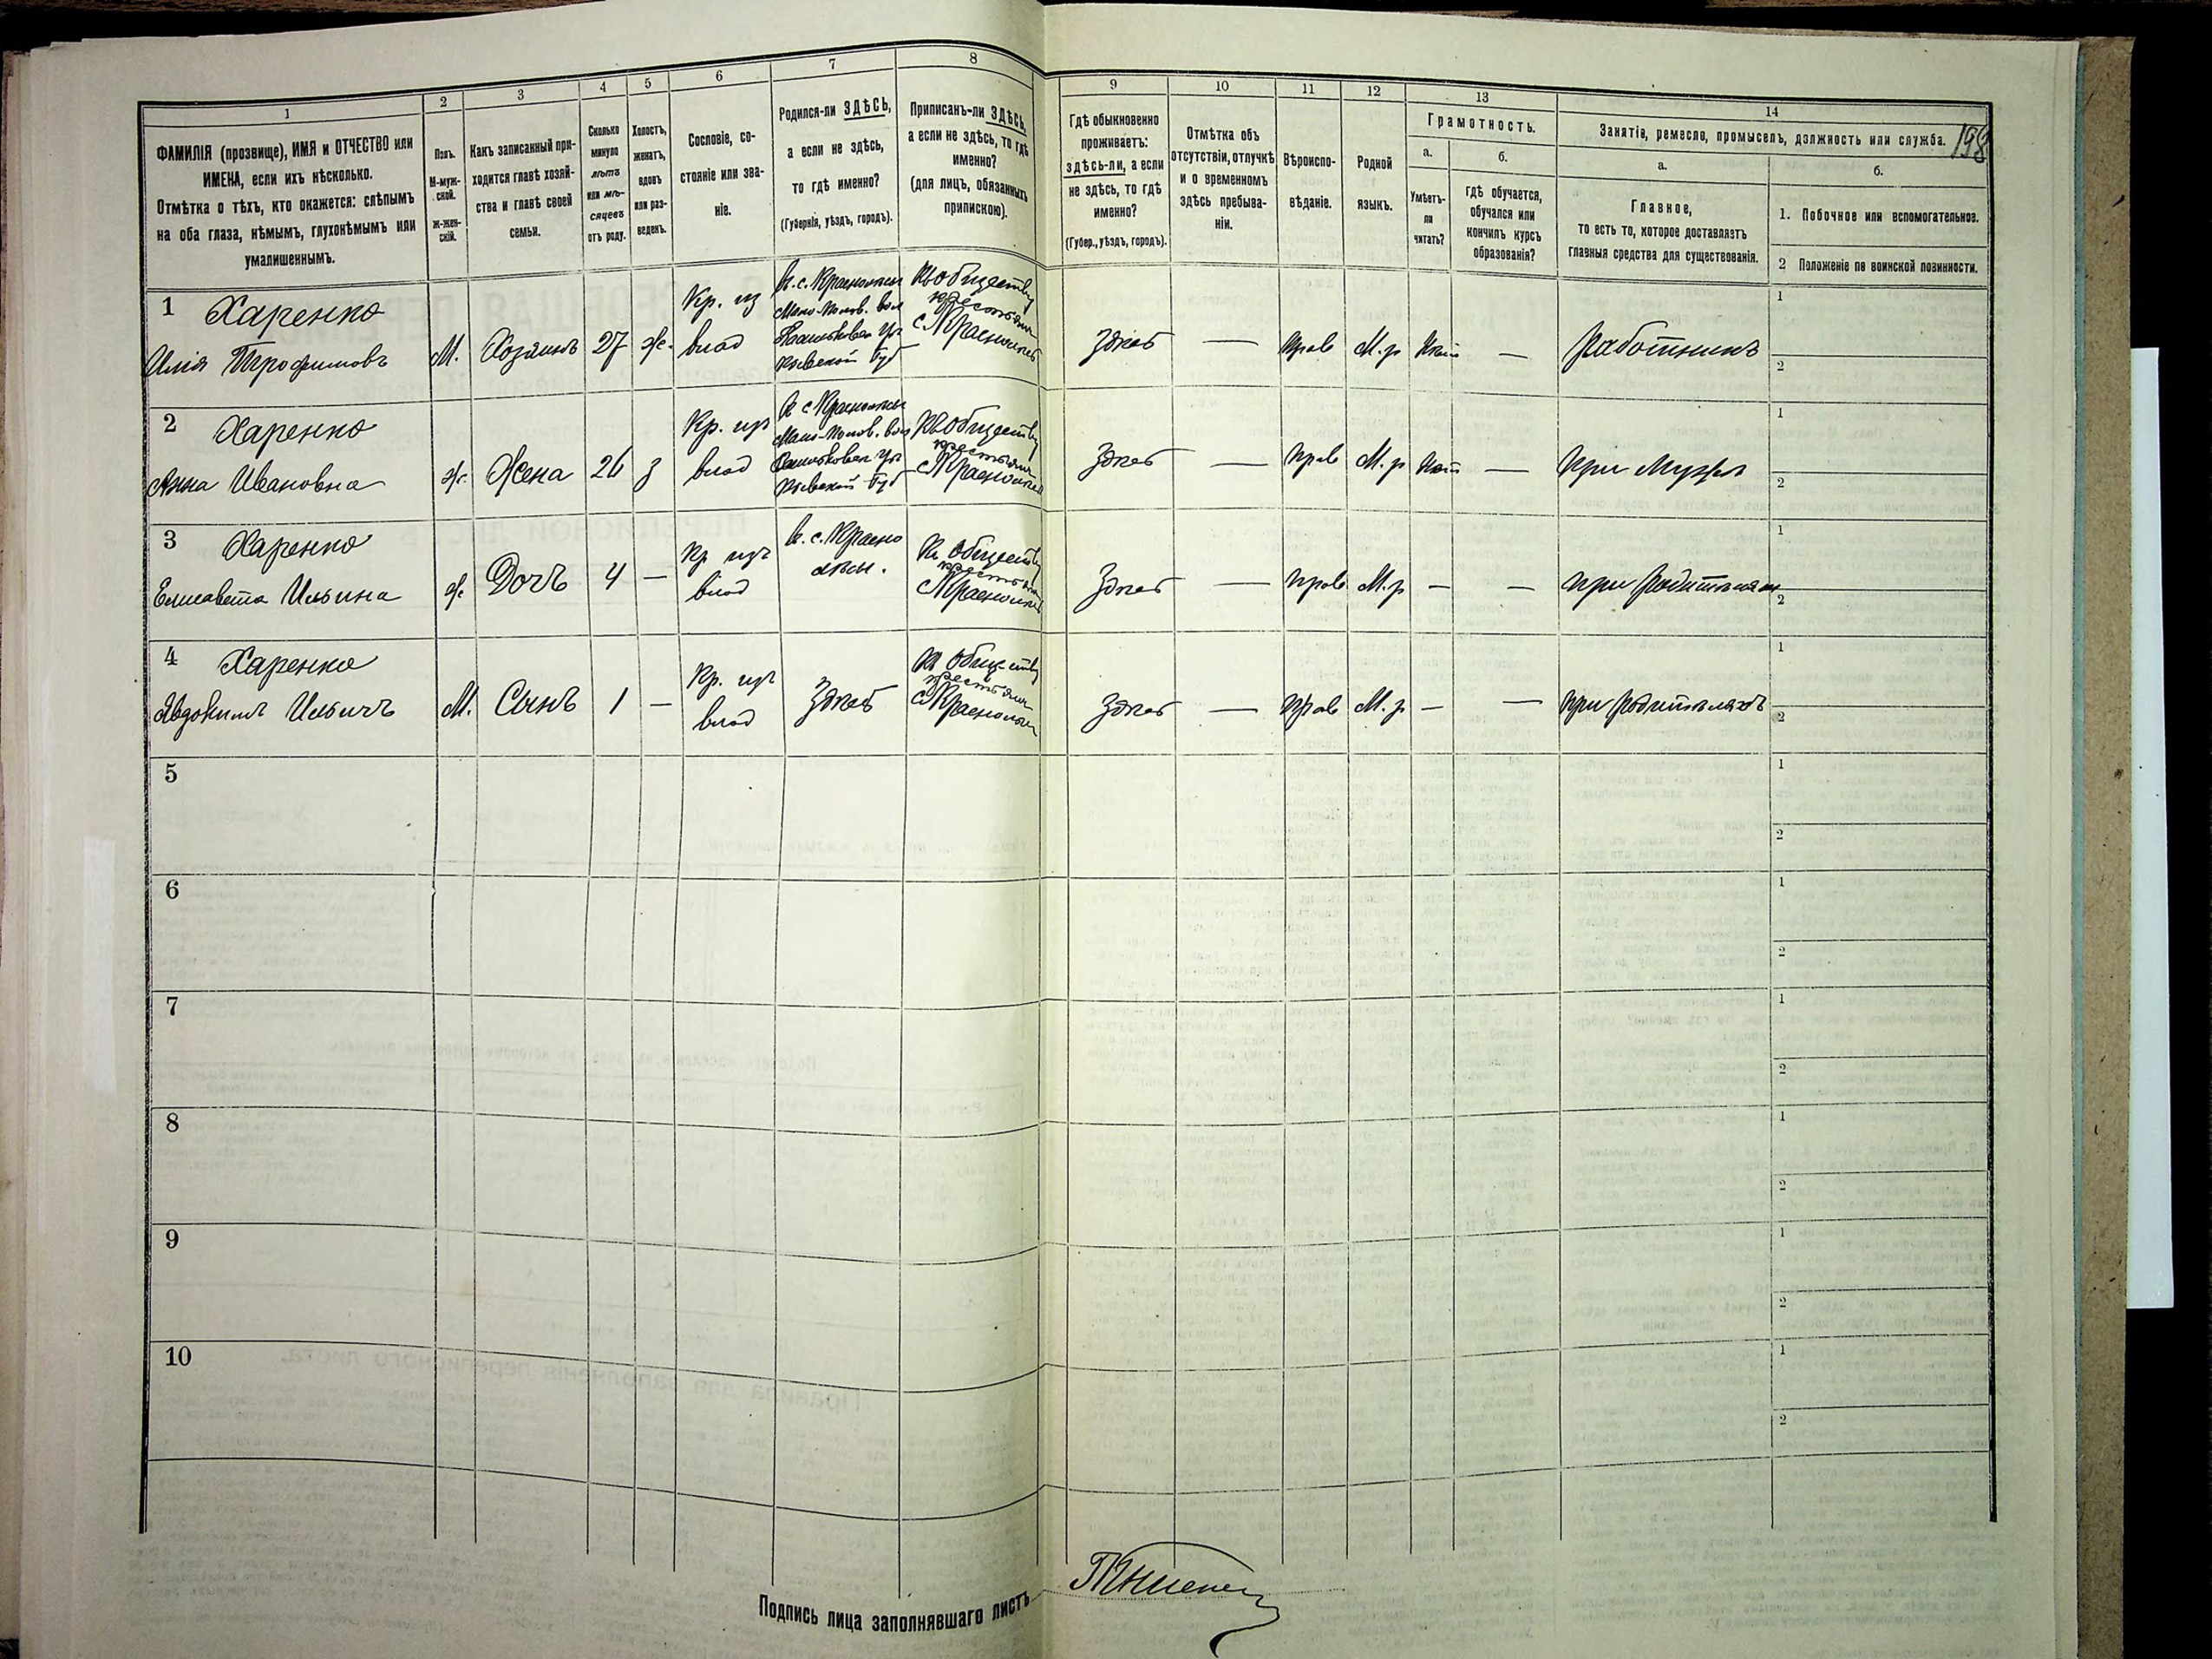 1
2
3
4
5
6
7
8
ФАМИЛІЯ (прозвище), ИМЯ и ОТЧЕСТВО или
ИМЕНА, если ихъ нѣсколько.
Отмѣтка о тѣхъ, кто окажется: слѣпымъ
на оба глаза, нѣмымъ, глухонѣмымъ или
умалишеннымъ.
Полъ.
М-муж-
ской.
Ж-жен-
скій.
Какъ записанный при-
ходится главѣ хозяй-
ства и главѣ своей
семьи.
Сколько
минуло
лѣтъ
или мѣ-
сяцевъ
отъ роду.
Холостъ,
женатъ,
вдовъ
или раз-
веденъ.
Сословіе, со-
стояніе или зва-
ніе.
Родился-ли ЗДѢСЬ,
а если не здѣсь,
то гдѣ именно?
(Губернія, уѣздъ, городъ).
Приписанъ-ли ЗДѢСЬ,
а если не здѣсь, то гдѣ
именно?
(для лицъ, обязанныхъ
припискою).
9
10
11
12
13
14
Гдѣ обыкновенно
проживаетъ:
здѣсь-ли, а если
не здѣсь, то гдѣ
именно?
(Губер., уѣздъ, городъ).
Отмѣтка объ
отсутствіи, отлучкѣ
и о временномъ
здѣсь пребыва-
ніи.
Вѣроиспо-
вѣданіе.
Родной
языкъ.
Грамотность.
а.
Умѣетъ-
ли
читать?
б.
гдѣ обучается,
обучался или
кончилъ курсъ
образованія?
Занятіе, ремесло, промыселъ, должность или служба.
198
а.
Главное,
то есть то, которое доставляетъ
главныя средства для существованія.
б.
1. Побочное или вспомогательное.
2 Положеніе по воинской повинности.
1 Харенко
Илія Трофимовъ
М.
Хозяинъ
27
ж.
Кр. из
влад
Мало-Полов. вол
Кіевской Губ
Къ обществу
крестьян
здесь
—
прав
М.р
Нет
—
Работникъ
1
2
2 Харенко
Анна Ивановна
ж.
Жена
26
з
Кр. изъ
влад
Мало-Полов. вол
Кіевской Губ
Къ обществу
крестьян
здесь
—
прав
М.р
Нет
—
при Мужѣ
1
2
3 Харенко
Елисавета Ильина
ж
Дочъ
4
—
Кр изъ
влад
Къ обществу
крестьян
здесь
—
прав
М.р
—
—
при родителях
1
2
4 Харенко
Явдокимъ Ильичъ
М.
Сынъ
1
—
Кр. изъ
влад
здесь
Къ обществу
крестьян
здесь
—
прав
М.р
—
—
при родителяхъ
1
2
5
1
2
6
1
2
7
1
2
8
1
2
9
1
2
10
1
2
Подпись лица заполнявшаго листъ